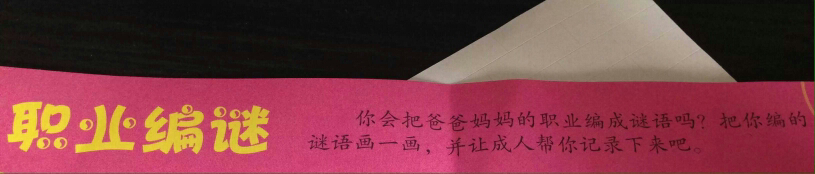 职业编谜
你会把爸爸妈妈的职业编成谜语吗？把你编的
谜语画一画，并让成人帮你记录下来吧。